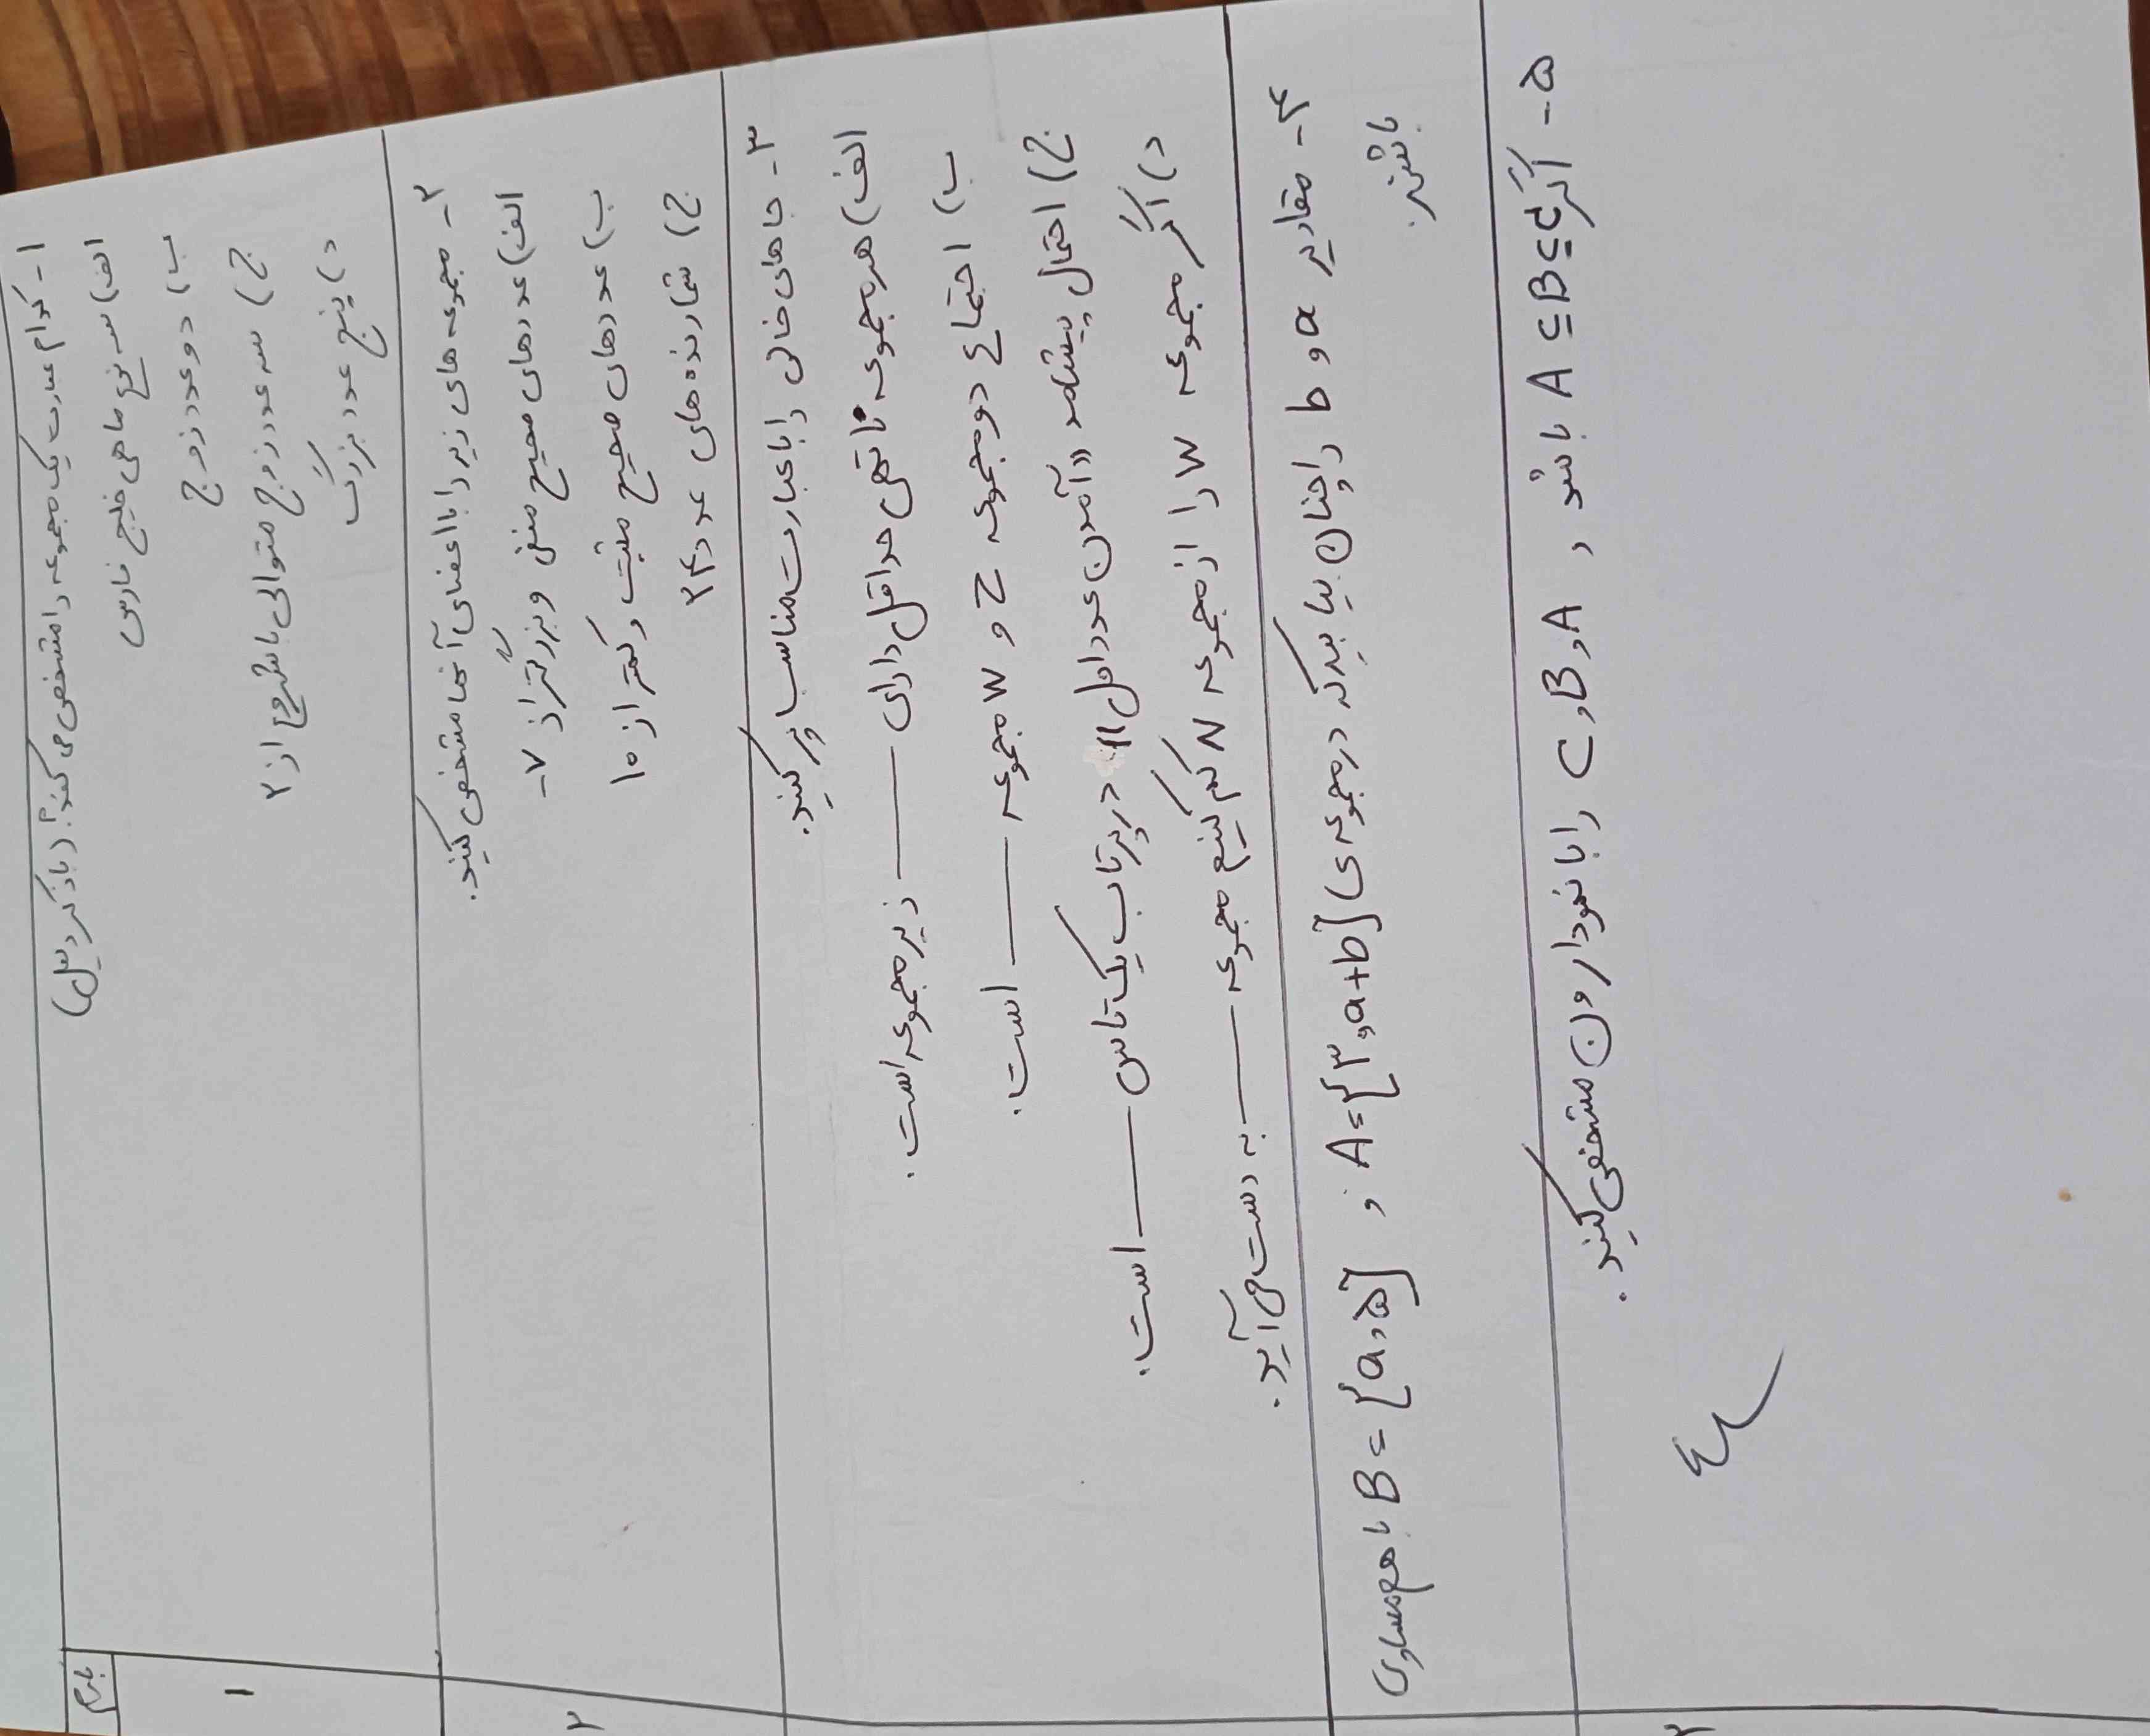 بارم
۱- کدام عبارت یک مجموعه را مشخص می کند؟ (با ذکر دلیل)
الف) سه نوع ماهی خلیج فارس
ب) دو عدد زوج
ج) سه عدد زوج متوالی با شروع از ۲
د) پنج عدد بزرگ
۱
۲- مجموعه های زیر را با اعضای آنها مشخص کنید.
الف) عددهای صحیح منفی و بزرگتر از ۷-
ب) عددهای صحیح مثبت و کمتر از ۱۰
ج) شمارنده های عدد ۲۴
۲
۳- جاهای خالی را با عبارت مناسب پر کنید.
الف) هر مجموعه ناتهی حداقل دارای —— زیر مجموعه است.
ب) اجتماع دو مجموعه Z و W مجموعه —— است.
ج) احتمال پیشامد «آمدن عدد اول» در پرتاب یک تاس —— است.
د) اگر مجموعه W را از مجموعه N کم کنیم مجموعه —— به دست می آید.
۴- مقادیر a و b را چنان بیابید که در مجموعه ی A={۳,a+b} و B={a,۵} با هم مساوی
باشند.
۵- اگر A⊆B⊆C باشد، A و B و C را با نمودار ون مشخص کنید.
۲